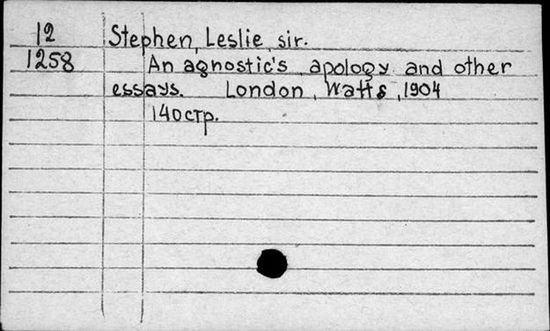 12
1258
Stephen, Leslie, sir.
An agnostic's apology and other
essays. London, Watts, 1904
140стр.